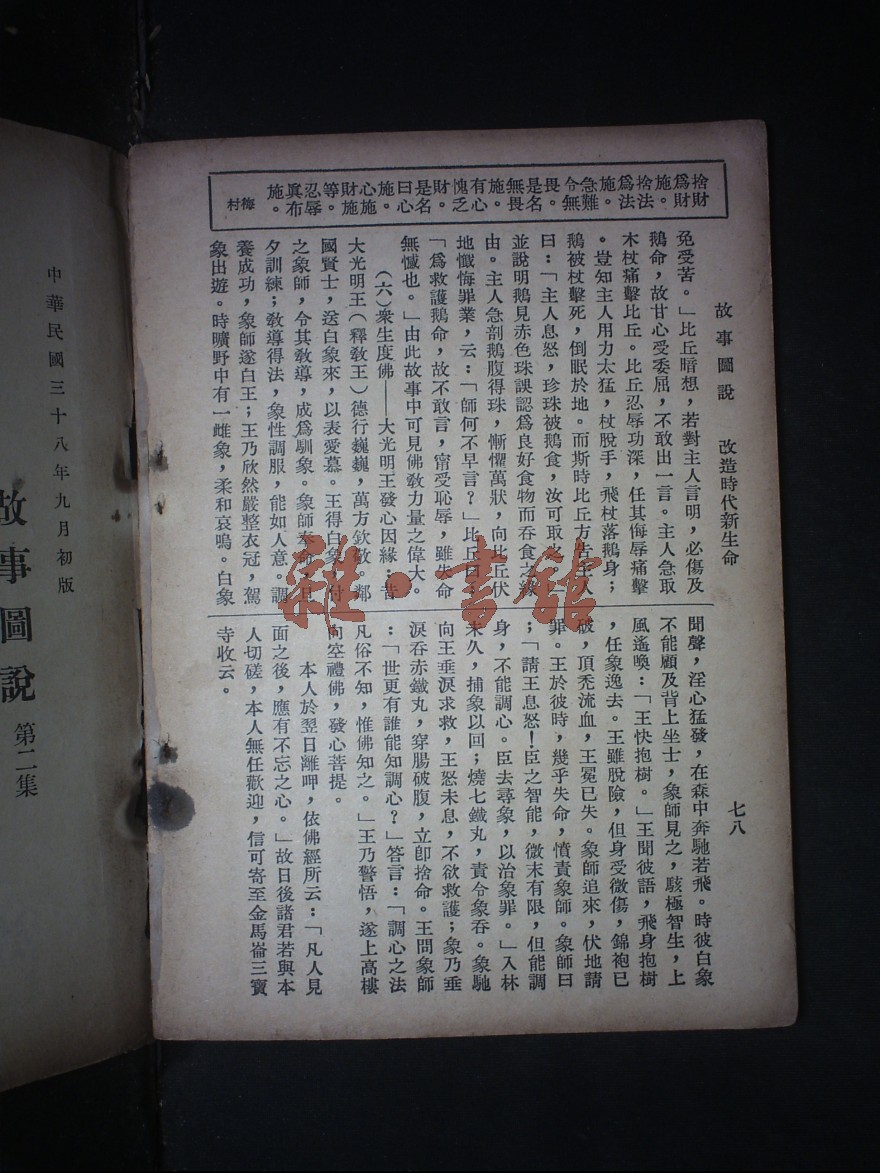 故事圖說　改造時代新生命
七八
捨財為財施。捨法為法施。急難令無畏。是名無畏施。有心愧乏財。是名曰心施。心施財施等。忍辱眞布施。
梅村
免受苦。」比丘暗想，若對主人言明，必傷及
鵝命，故甘心受委屈，不敢出一言。主人急取
木杖痛擊比丘。比丘忍辱功深，任其侮辱痛擊
。豈知主人用力太猛，杖脫手，飛杖落鵝身；
鵝被杖擊死，倒眠於地。而斯時比丘方告主人
曰：「主人息怒，珍珠被鵝食，汝可取之。」
並說明鵝見赤色珠誤認爲良好食物而吞食之緣
由。主人急剖鵝腹得珠，慚懼萬狀，向比丘伏
地懺悔罪業，云：「師何不早言？」比丘曰：
「爲救護鵝命，故不敢言，甯受恥辱，雖失命
無憾也。」由此故事中可見佛敎力量之偉大。
（六）衆生度佛——大光明王發心因緣；昔
大光明王（釋敎王）德行巍巍，萬方欽敬。鄰
國賢士，送白象來，以表愛慕。王得白象，付
之象師，令其敎導，成爲馴象。象師奉命，旦
夕訓練；敎導得法，象性調服，能如人意。調
養成功，象師遂白王；王乃欣然嚴整衣冠，駕
象出遊。時曠野中有一雌象，柔和哀鳴。白象
聞聲，淫心猛發，在森中奔馳若飛。時彼白象
不能顧及背上坐士，象師見之，駭極智生，上
風遙喚：「王快抱樹。」王聞彼語，飛身抱樹
，任象逸去。王雖脫險，但身受微傷，錦袍已
破，頂禿流血，王冕已失。象師追來，伏地請
罪。王於彼時，幾乎失命，憤責象師。象師曰
；「請王息怒！臣之智能，微末有限，但能調
身，不能調心。臣去尋象，以治象罪。」入林
未久，捕象以回；燒七鐵丸，責令象吞。象馳
向王垂淚求救，王怒未息，不欲救護；象乃垂
淚吞赤鐵丸，穿腸破腹，立卽捨命。王問象師
：「世更有誰能知調心？」答言：「調心之法
凡俗不知，惟佛知之。」王乃警悟，遂上高樓
向空禮佛，發心菩提。
本人於翌日離呷，依佛經所云：「凡人見
面之後，應有不忘之心。」故日後諸君若與本
人切磋，本人無任歡迎，信可寄至金馬崙三寶
寺收云。
中華民國三十八年九月初版
故事圖說　第二集
雜·書館